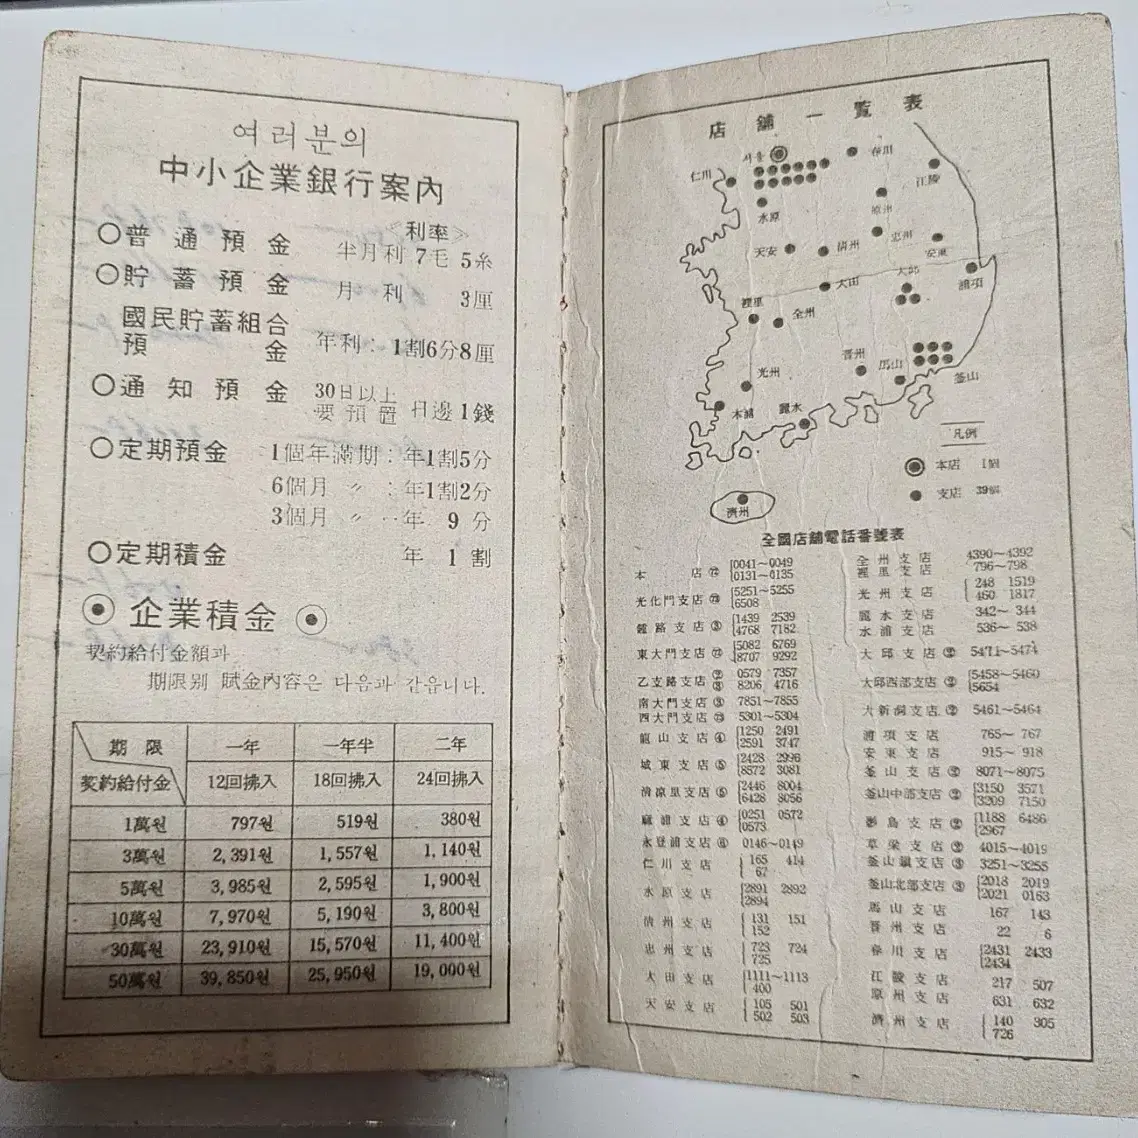 여러분의
中小企業銀行案內
<利率>
○普通預金 半月利 7毛 5糸
○貯蓄預金 月利 3厘
國民貯蓄組合
預金 年利: 1割6分8厘
○通知預金 30日以上
要預置 日邊 1錢
○定期預金 1個年滿期: 年1割5分
6個月 〃 : 年1割2分
3個月 〃 ‥年 9分
○定期積金 年 1割
◉ 企業積金 ◉
契約給付金額과
期限別 賦金內容은 다음과 같읍니다.
期限 一年 一年半 二年
契約給付金 12回拂入 18回拂入 24回拂入
1萬원 797원 519원 380원
3萬원 2,391원 1,557원 1,140원
5萬원 3,985원 2,595원 1,900원
10萬원 7,970원 5,190원 3,800원
30萬원 23,910원 15,570원 11,400원
50萬원 39,850원 25,950원 19,000원
店舖一覽表
서울 春川
仁川 江陵
水原 原州
忠州
天安 淸州 安東
大邱
大田 浦項
裡里 全州
晋州 馬山
光州 釜山
木浦 麗水
凡例
本店 1個
支店 39個
濟州
全國店舖電話番號表
本店 ⑫ 0041~0049
0131~0135
光化門支店 ⑬ 5251~5255
6508
鐘路支店 ③ 1439 2539
4768 7182
東大門支店 ⑫ 5082 6769
8707 9292
乙支路支店 ② 0579 7357
③ 8206 4716
南大門支店 ③ 7851~7855
西大門支店 ⑬ 5301~5304
龍山支店 ④ 1250 2491
2591 3747
城東支店 ⑤ 2428 2996
8572 3081
淸凉里支店 ⑤ 2446 8004
6428 8056
麻浦支店 ④ 0251 0572
0573
永登浦支店 ⑥ 0146~0149
仁川支店 165 414
67
水原支店 2891 2892
2894
淸州支店 131 151
152
忠州支店 723 724
725
大田支店 1111~1113
400
天安支店 105 501
502 503
全州支店 4390~4392
裡里支店 796~798
光州支店 248 1519
460 1817
麗水支店 342~344
木浦支店 536~538
大邱支店 ② 5471~5474
大邱西部支店 ② 5458~5460
5654
大新洞支店 ② 5461~5464
浦項支店 765~767
安東支店 915~918
釜山支店 ② 8071~8075
釜山中部支店 ② 3150 3571
3209 7150
影島支店 ② 1188 6486
2967
草梁支店 ② 4015~4019
釜山鎭支店 ③ 3251~3255
釜山北部支店 ③ 2018 2019
2021 0163
馬山支店 167 143
晋州支店 22 6
春川支店 2431 2433
2434
江陵支店 217 507
原州支店 631 632
濟州支店 140 305
726